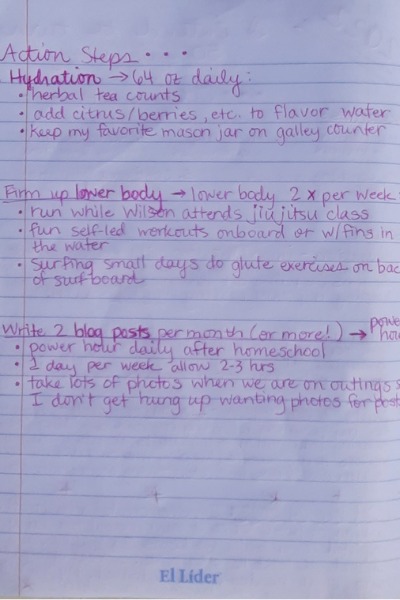 Action Steps...
Hydration → 64 oz daily:
• herbal tea counts
• add citrus/berries, etc. to flavor water
• keep my favorite mason jar on galley counter
Firm up lower body → lower body 2x per week
• run while Wilson attends jiujitsu class
• fun self-led workouts onboard or w/fins in
the water
• surfing small days do glute exercises on bac
of surfboard
Write 2 blog posts per month (or more!) → powe
hou
• power hour daily after homeschool
• 1 day per week allow 2-3 hrs
• take lots of photos when we are on outings s
I don't get hung up wanting photos for post
El Líder